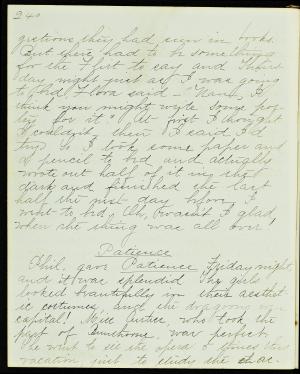 240
gestions they had seen in books.
But there had to be something
for the first to say and Thurs-
day night just as I was going
to bed Flora said - "Nan, I
think you might write some po-
etry for it." At first I thought
I couldn't, then I said I'd
try. So I took some paper and
a pencil to bed and actually
wrote out half of it in the
dark and finished the last
half the next day before I
went to bed. Oh, wasn't I glad
when the thing was all over!
Patience
Phil. gave Patience Friday night,
and it was splendid. The girls
looked beautifully in their aesthet-
ic costumes, and the dragoons
capital! Miss who took the
part of Bunthorne, was perfect.
We went to see the opera
vacation just to study the char-